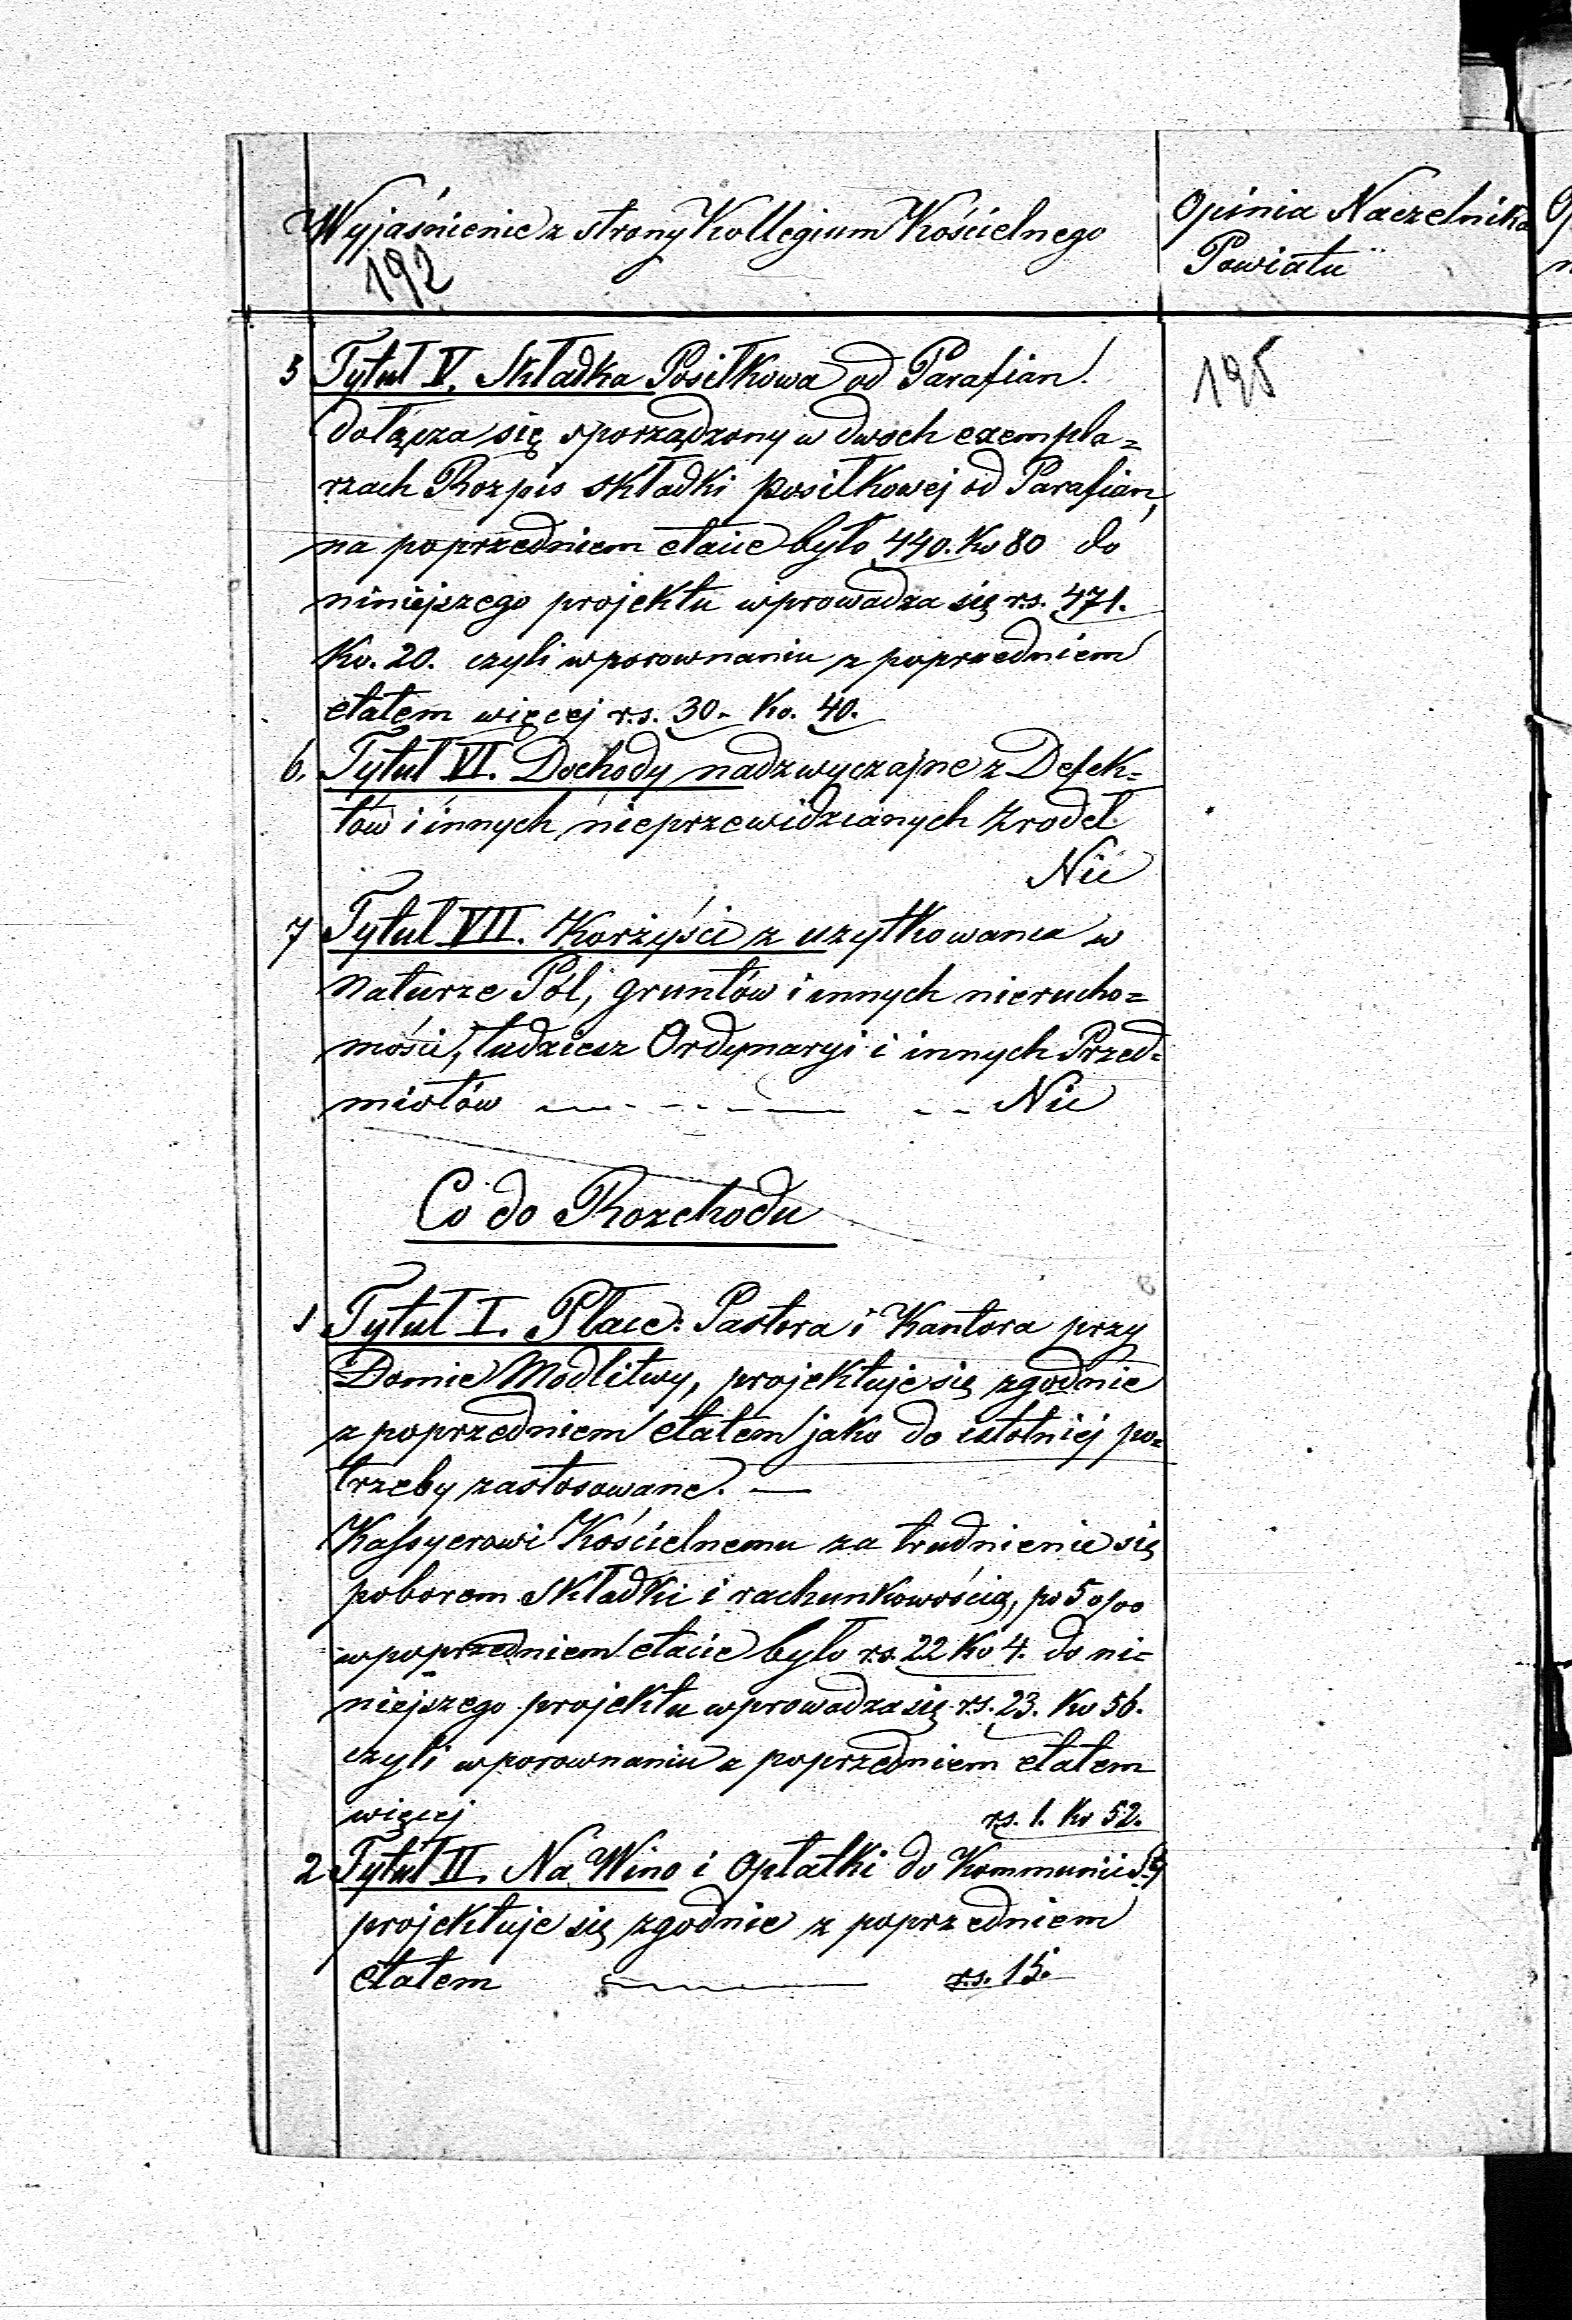 Wyjaśnienie z strony Kollegium Kościelnego
192
Opinia Naczelnika
Powiatu
195
5 Tytuł V. Składka Posiłkowa od Parafian.
dołącza się sporządzony w dwoch exempla=
rzach Rozpis składki posiłkowej od Parafian,
na poprzedniem etacie było 440. Ko 80 do
niniejszego projektu wprowadza się rs. 471.
Ko. 20. czyli w porownaniu z poprzedniem
etatem więcej r.s. 30.- Ko. 40.
6. Tytuł VI. Dochody nadzwyczajne z Defek=
tów i innych nieprzewidzianych Zrodeł
Nic
7 Tytuł VII. Korzyści z uzytkowania w
naturze Pól, gruntów i innych nierucho=
mości, tudziesz Ordynaryi i innych Przed=
miotów Nic
Co do Rozchodu
1 Tytuł I. Płace: Pastora i Kantora przy
Domie Modlitwy, projektuje się zgodnie
z poprzedniem etatem jako do istotniej po=
trzeby zastosowane. —
Kassyerowi Kościelnemu za trudnienie się
poborem Składki i rachunkowością, po 5 o/oo
w poprzedniem etacie było r.s. 22 Ko 4. do ni=
niejszego projektu wprowadza się r.s. 23. Ko 56.
czyli w porownaniu z poprzedniem etatem
więcej rs. 1. Ko 52.
2 Tytuł II. Na Wino i Opłatki do Kommunii Stj
projektuje się zgodnie z poprzedniem
etatem r.s. 15.